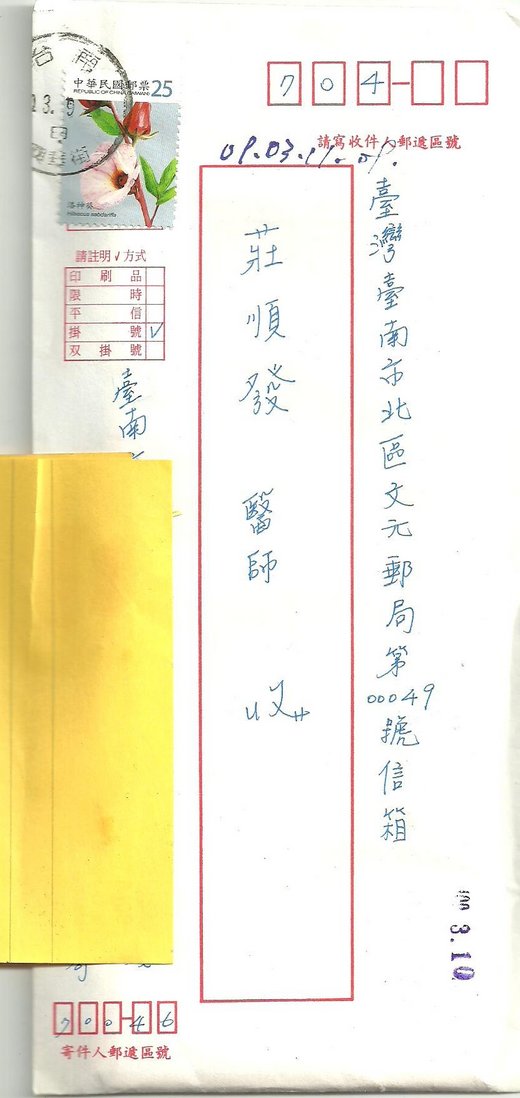 台南
中華民國郵票 25
REPUBLIC OF CHINA (TAIWAN)
洛神葵
Hibiscus sabdariffa
704
請寫收件人郵遞區號
臺灣臺南市北區文元郵局第00049號信箱
莊順發 醫師 收
請註明✓方式
印刷品
限時
平信
掛號 ✓
双掛號
臺南
3.10
70046
寄件人郵遞區號